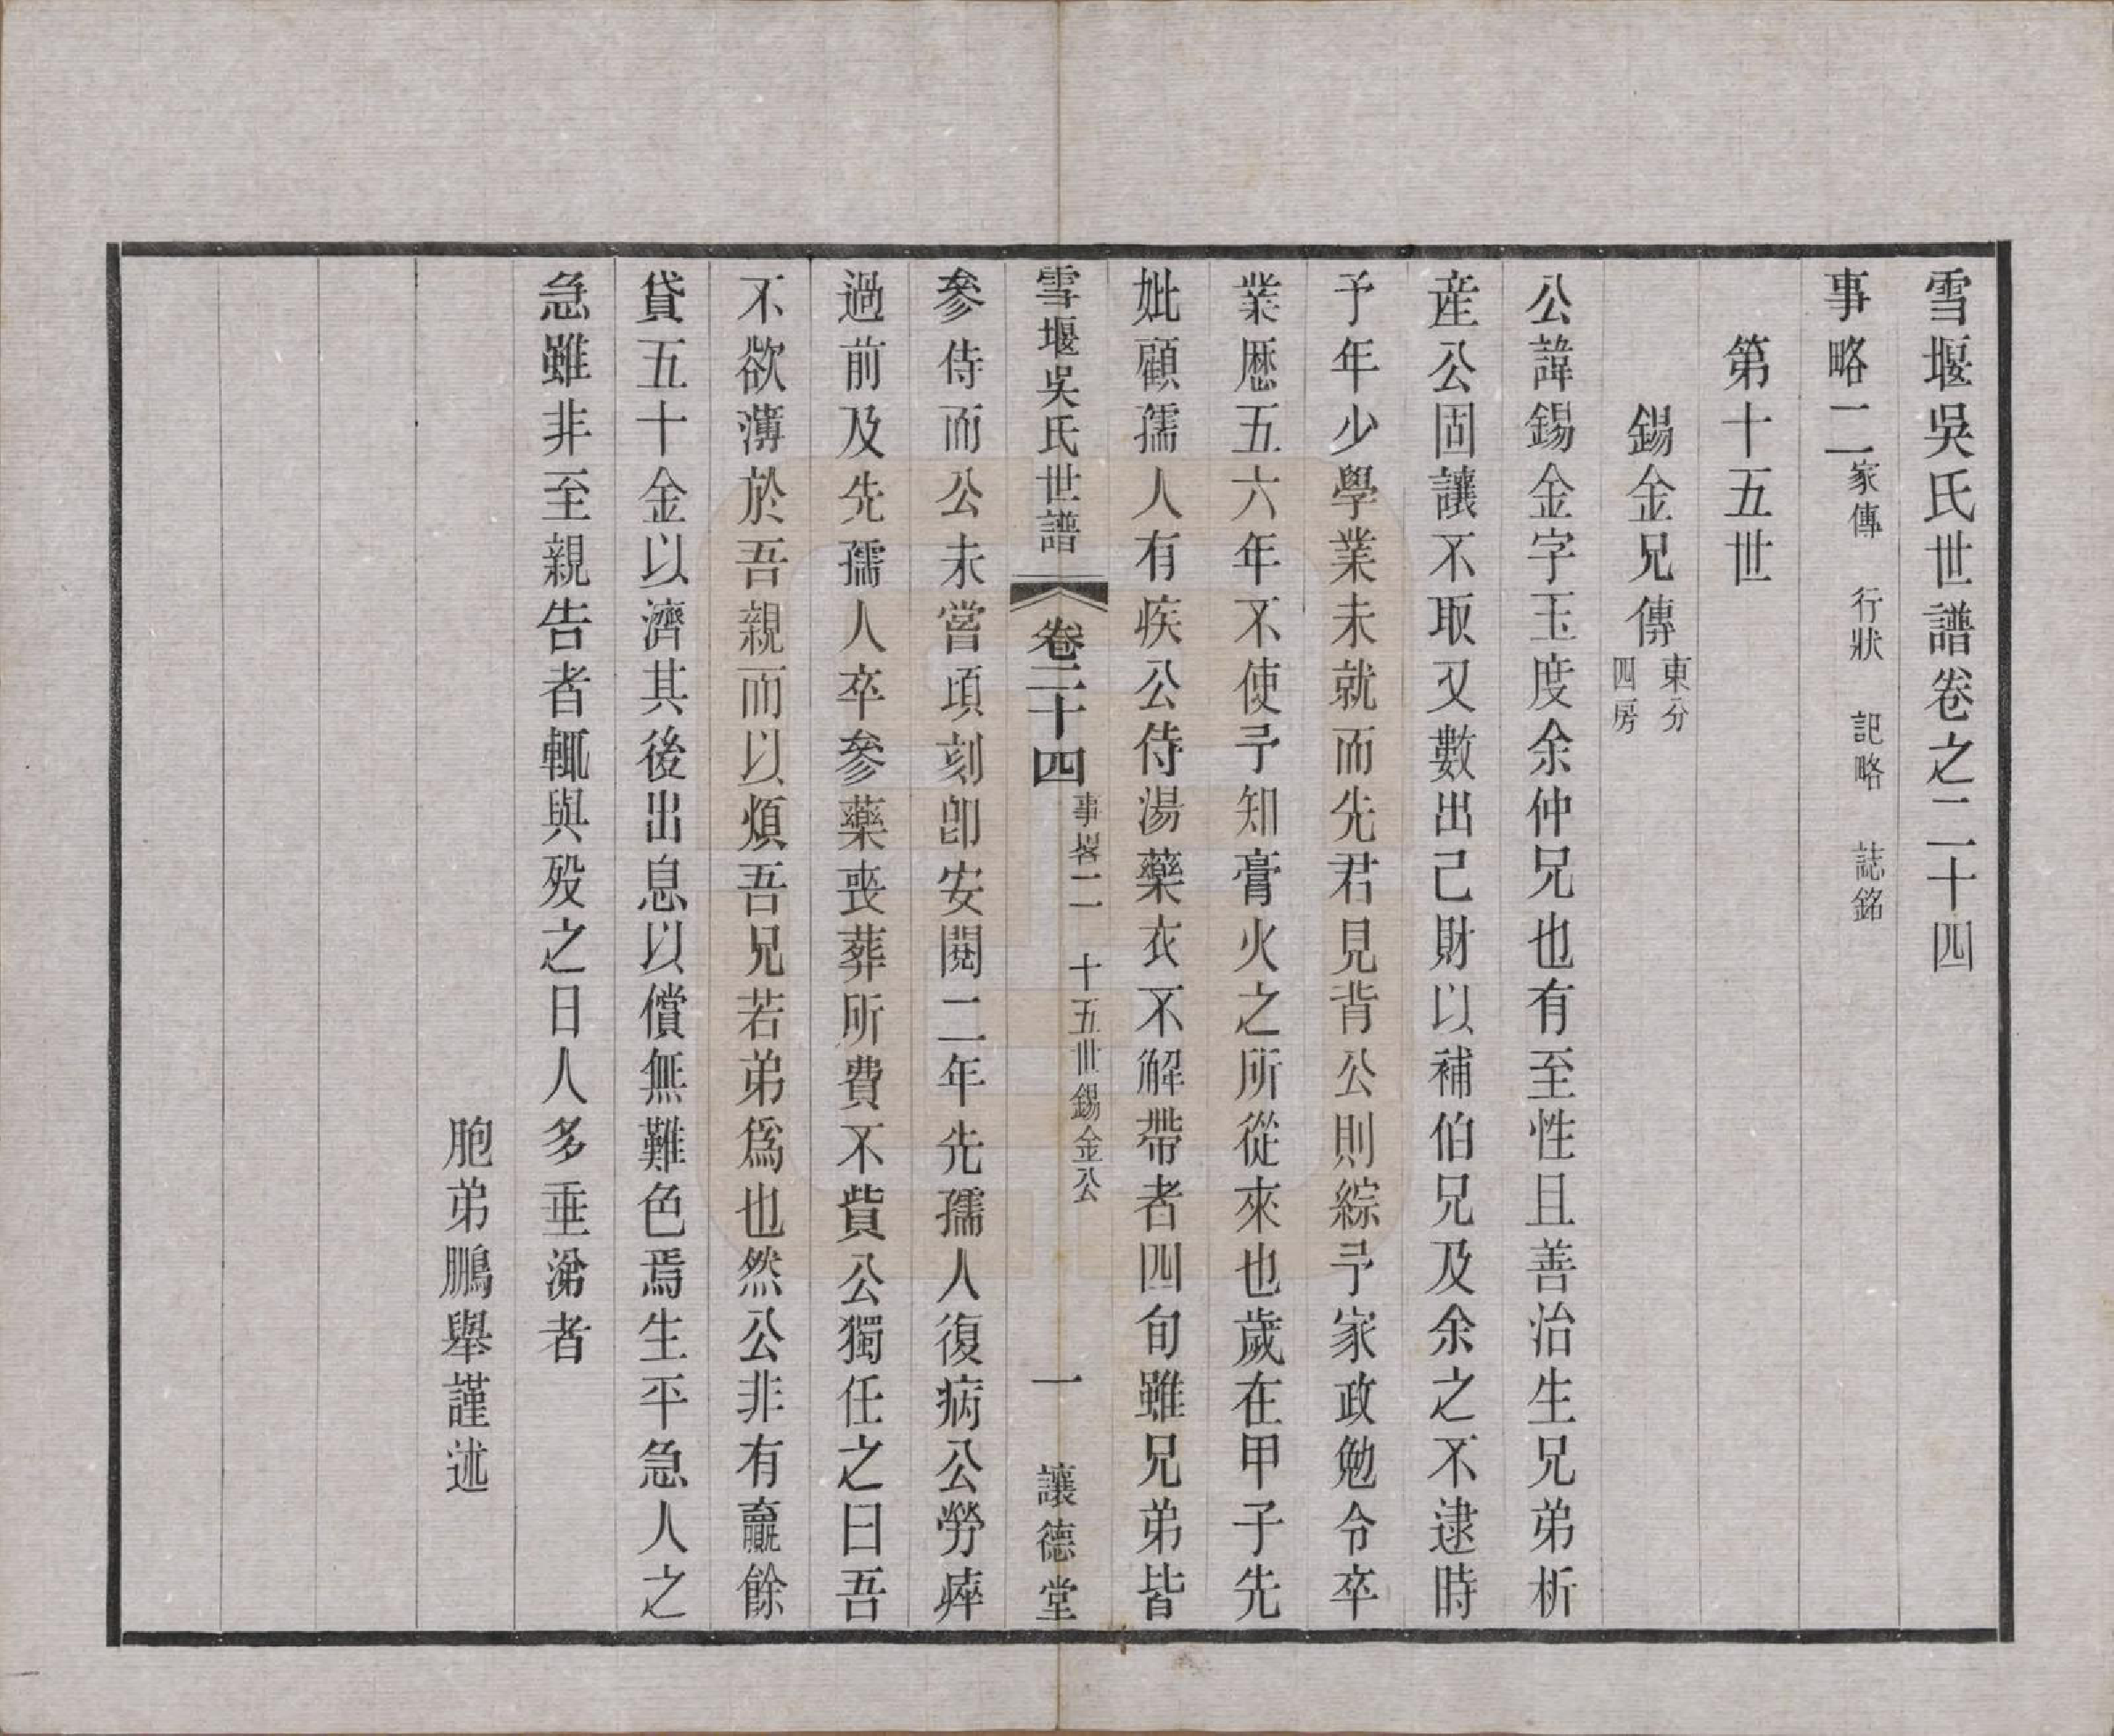 雪堰吳氏世譜卷之二十四
事略二家傳 行狀 記略 誌銘
第十五世
錫金兄傳東分四房
公諱錫金字玉度余仲兄也有至性且善治生兄弟析
産公固讓不取又數出己財以補伯兄及余之不逮時
予年少學業未就而先君見背公則綜予家政勉令卒
業歷五六年不使予知膏火之所從來也歲在甲子先
妣顧孺人有疾公侍湯藥衣不解帶者四旬雖兄弟皆
雪堰吳氏世譜 卷二十四 事畧二 十五世錫金公 一 讓德堂
參侍而公未嘗頃刻卽安閱二年先孺人復病公勞瘁
過前及先孺人卒參藥喪葬所費不貲公獨任之曰吾
不欲薄於吾親而以煩吾兄若弟爲也然公非有贏餘
貸五十金以濟其後出息以償無難色焉生平急人之
急雖非至親告者輒與歿之日人多垂涕者
胞弟鵬舉謹述